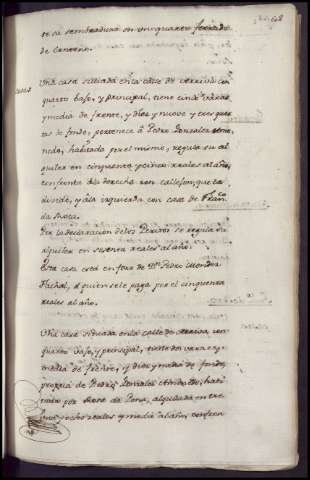 de su sembradura un quarto ferrado
de Centeno.
casas
Una casa situada en la calle de arriva con
quarto bajo, y principal, tiene cinco varas
y media de frente, y diez y nueve y tres quar
tas de fondo, pertenece a Pedro Gonzalez
nedo, habitada por el mismo, regula su al
quiler en cinquenta y cinco reales al año,
confronta a la derecha con callejon, que la
divide, y a la izquierda con casa de Fran.co
da Roca.
Por la declaracion de los Peritos se regula su
alquiler en sesenta reales al año.
Esta casa está en foro de D.n Pedro Mendez
a quien se le paga por el cinquenta
reales al año.
Una casa situada en la calle de arriva con
quarto bajo, y principal, tiene dos varas y
media de frente, y diez y media de fondo,
propia de Pedro Gonzalez habi
tada por Rosa de Pona, alquilada en tre
ocho reales y medio al año, confron